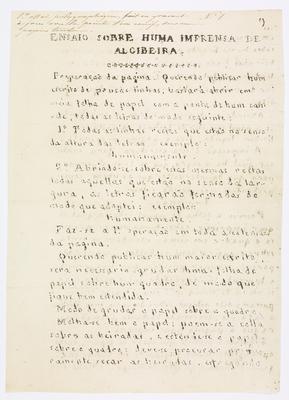 Nº 1
ENSAIO SOBRE HUMA IMPRENSA DE
ALGIBEIRA.
Preparação da pagina. Querendo publicar hum
escrito de poucas linhas, bastará abrir em
meia folha de papel com a ponta de hum cani-
de, todas as letras do modo seguinte:
1º Todas as linhas rectas que estão no senso
da altura das letras exemplo:
humanamente.
2º Abrindo-se sobre estas mesmas rectas
todas aquellas que estão no senso da lar-
gura, as letras ficarão formadas do
modo que adoptei: exemplo:
humanamente.
Faz-se a 1ª operação em toda a extensão
da pagina.
Querendo publicar hum maior escrito,
será necessario grudar huma folha de
papel sobre hum quadro, de modo que
fique bem estendida.
Modo de grudar o papel sobre o quadro
Molha-se bem o papel; poem-se a colla
sobre as beiradas, e estende-se o papel
sobre o quadro; deve-se procurar pri-
ramente secar as beiradas, esfregando